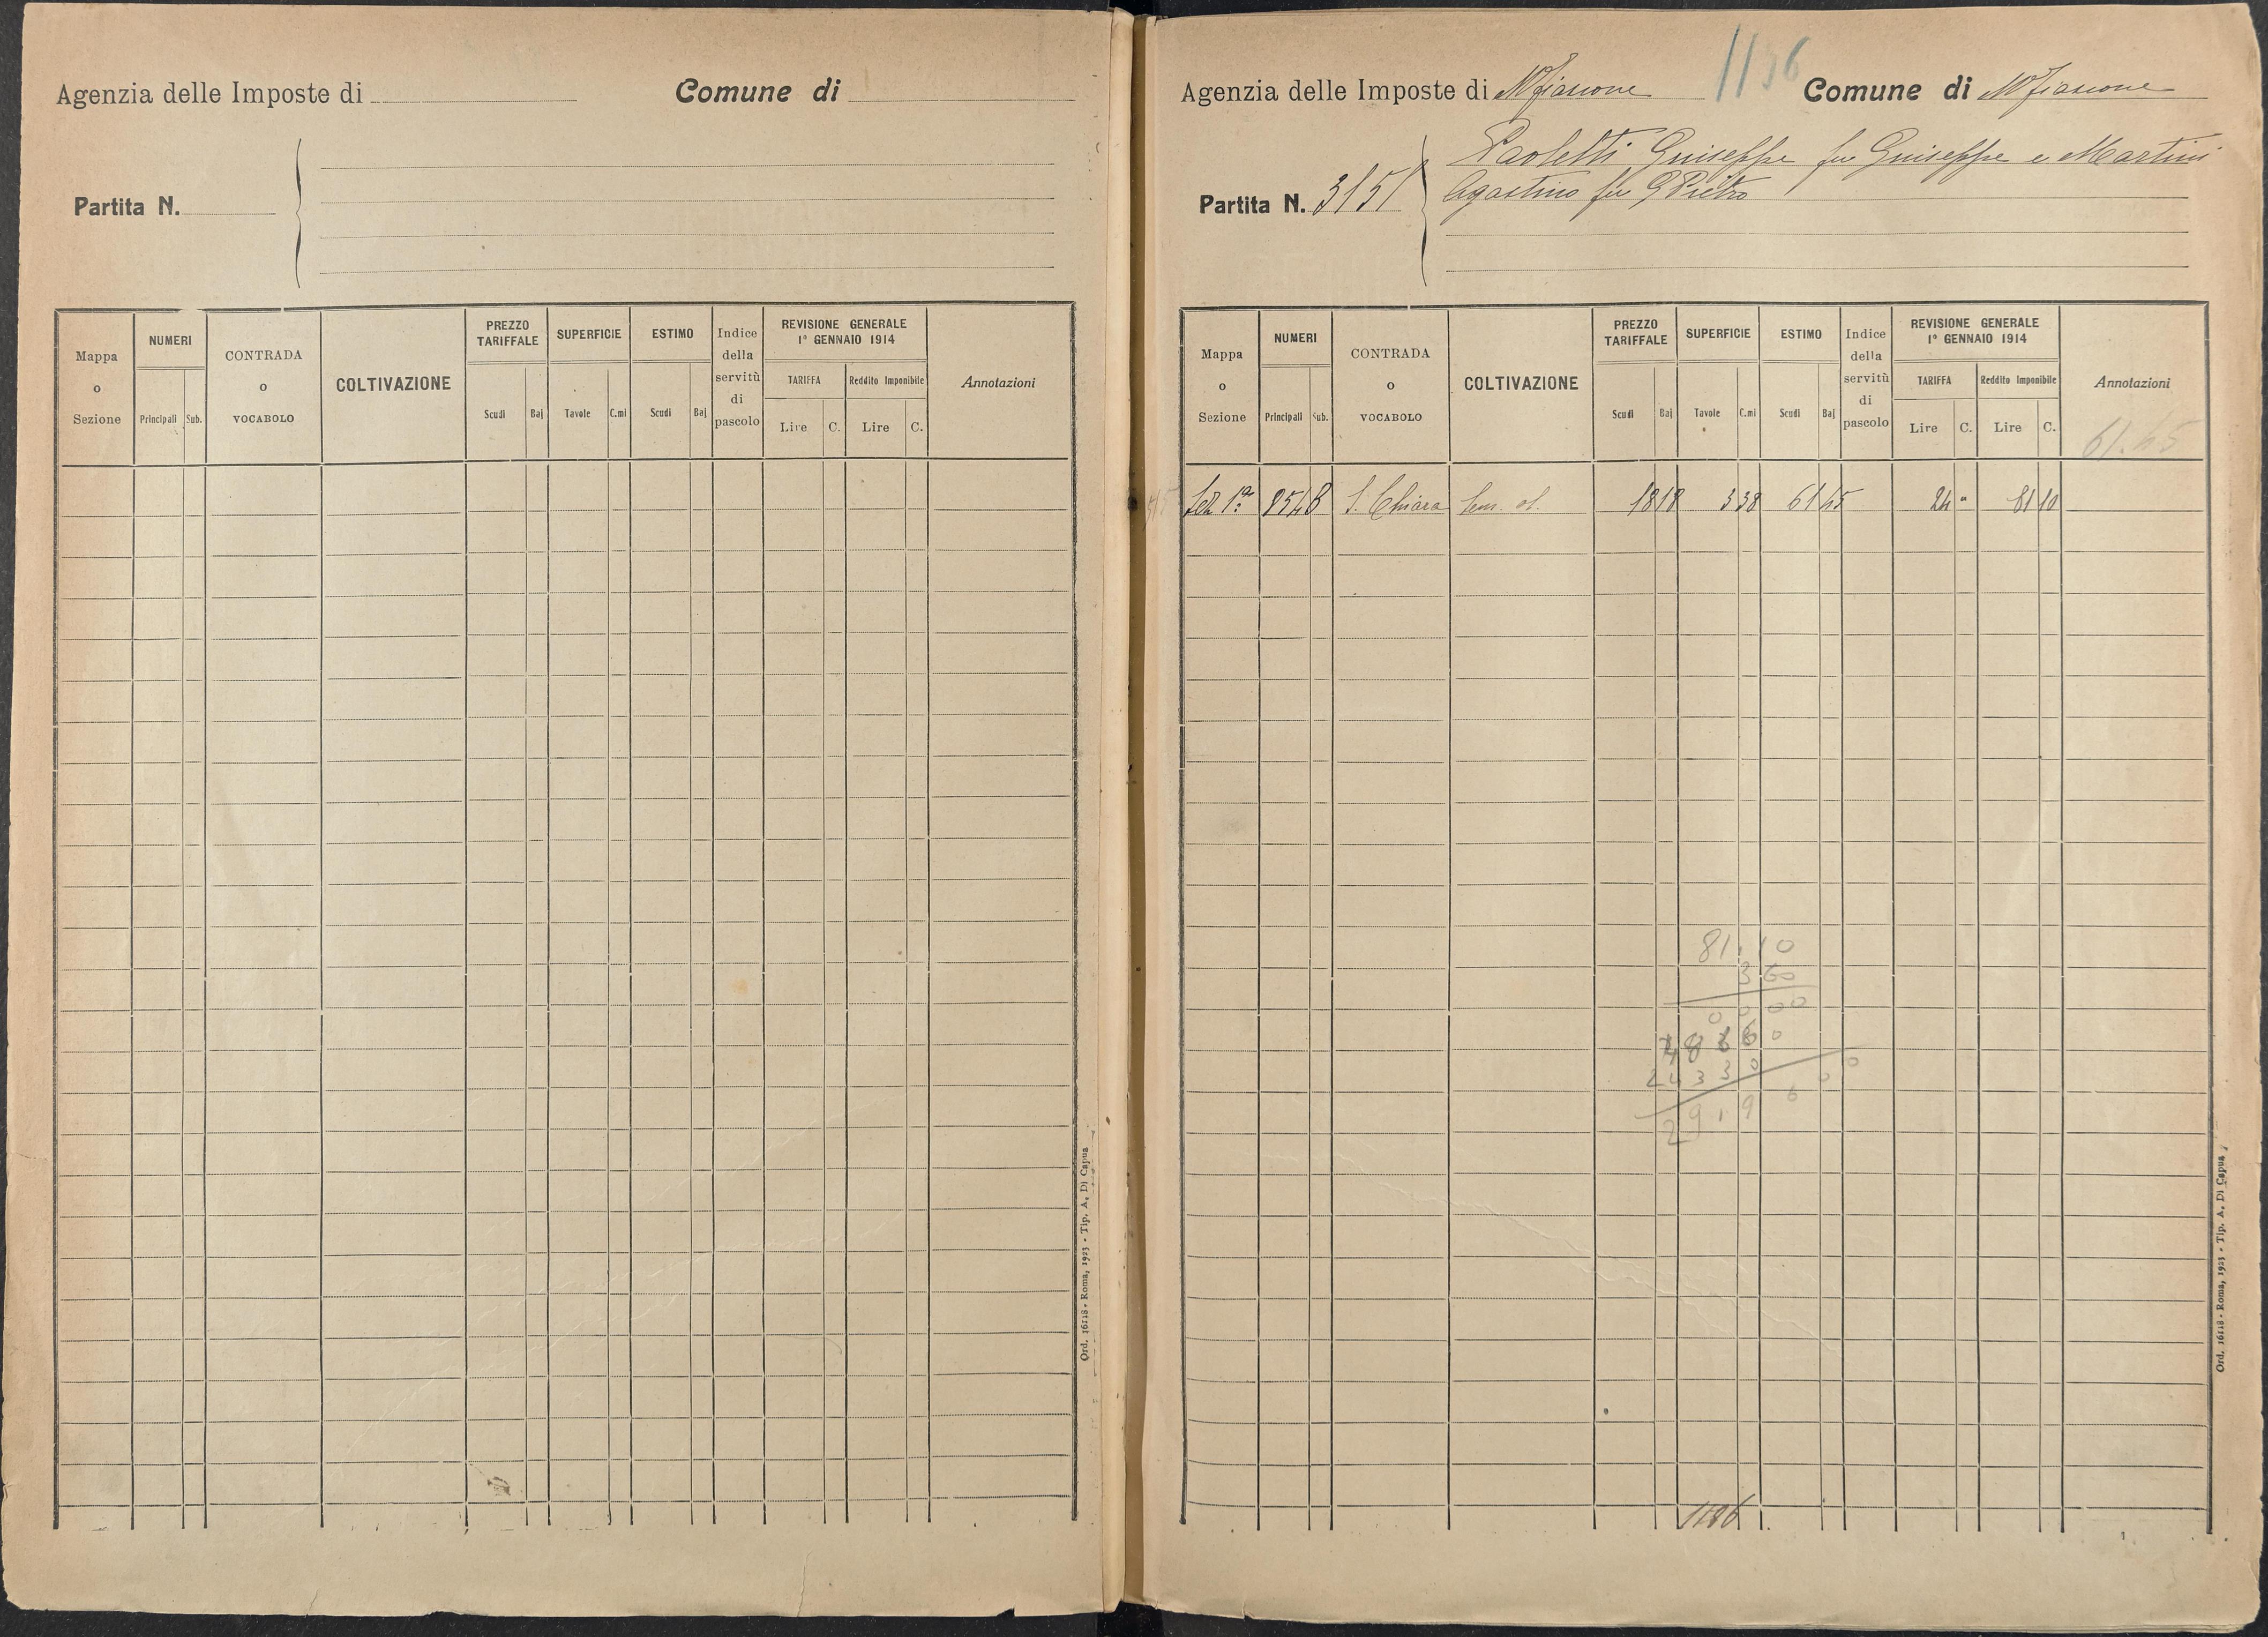 Agenzia delle Imposte di
Comune di
Partita N.
Mappa o Sezione
NUMERI
Principali
Sub.
CONTRADA o VOCABOLO
COLTIVAZIONE
PREZZO TARIFFALE
Scudi
Baj
SUPERFICIE
Tavole
C.mi
ESTIMO
Scudi
Baj
Indice della servitù di pascolo
REVISIONE GENERALE
1° GENNAIO 1914
TARIFFA
Lire
C.
Reddito Imponibile
Lire
C.
Annotazioni
Ord. 16118 - Roma, 1923 - Tip. A. Di Capua
Agenzia delle Imposte di Mfiascone
1186
Comune di Mfiascone
Partita N. 3151
Paoletti Guiseppe fu Guiseppe e Martini
Agostino fu G Pietro
Mappa o Sezione
NUMERI
Principali
Sub.
CONTRADA o VOCABOLO
COLTIVAZIONE
PREZZO TARIFFALE
Scudi
Baj
SUPERFICIE
Tavole
C.mi
ESTIMO
Scudi
Baj
Indice della servitù di pascolo
REVISIONE GENERALE
1° GENNAIO 1914
TARIFFA
Lire
C.
Reddito Imponibile
Lire
C.
Annotazioni
61.45
Sez 1ª 854 B S. Chiara Sem. ol. 18 18 3 38 61 45 24 " 81 10
81.10
360
0000
48660
24330
2919600
1186
Ord. 16118 - Roma, 1923 - Tip. A. Di Capua